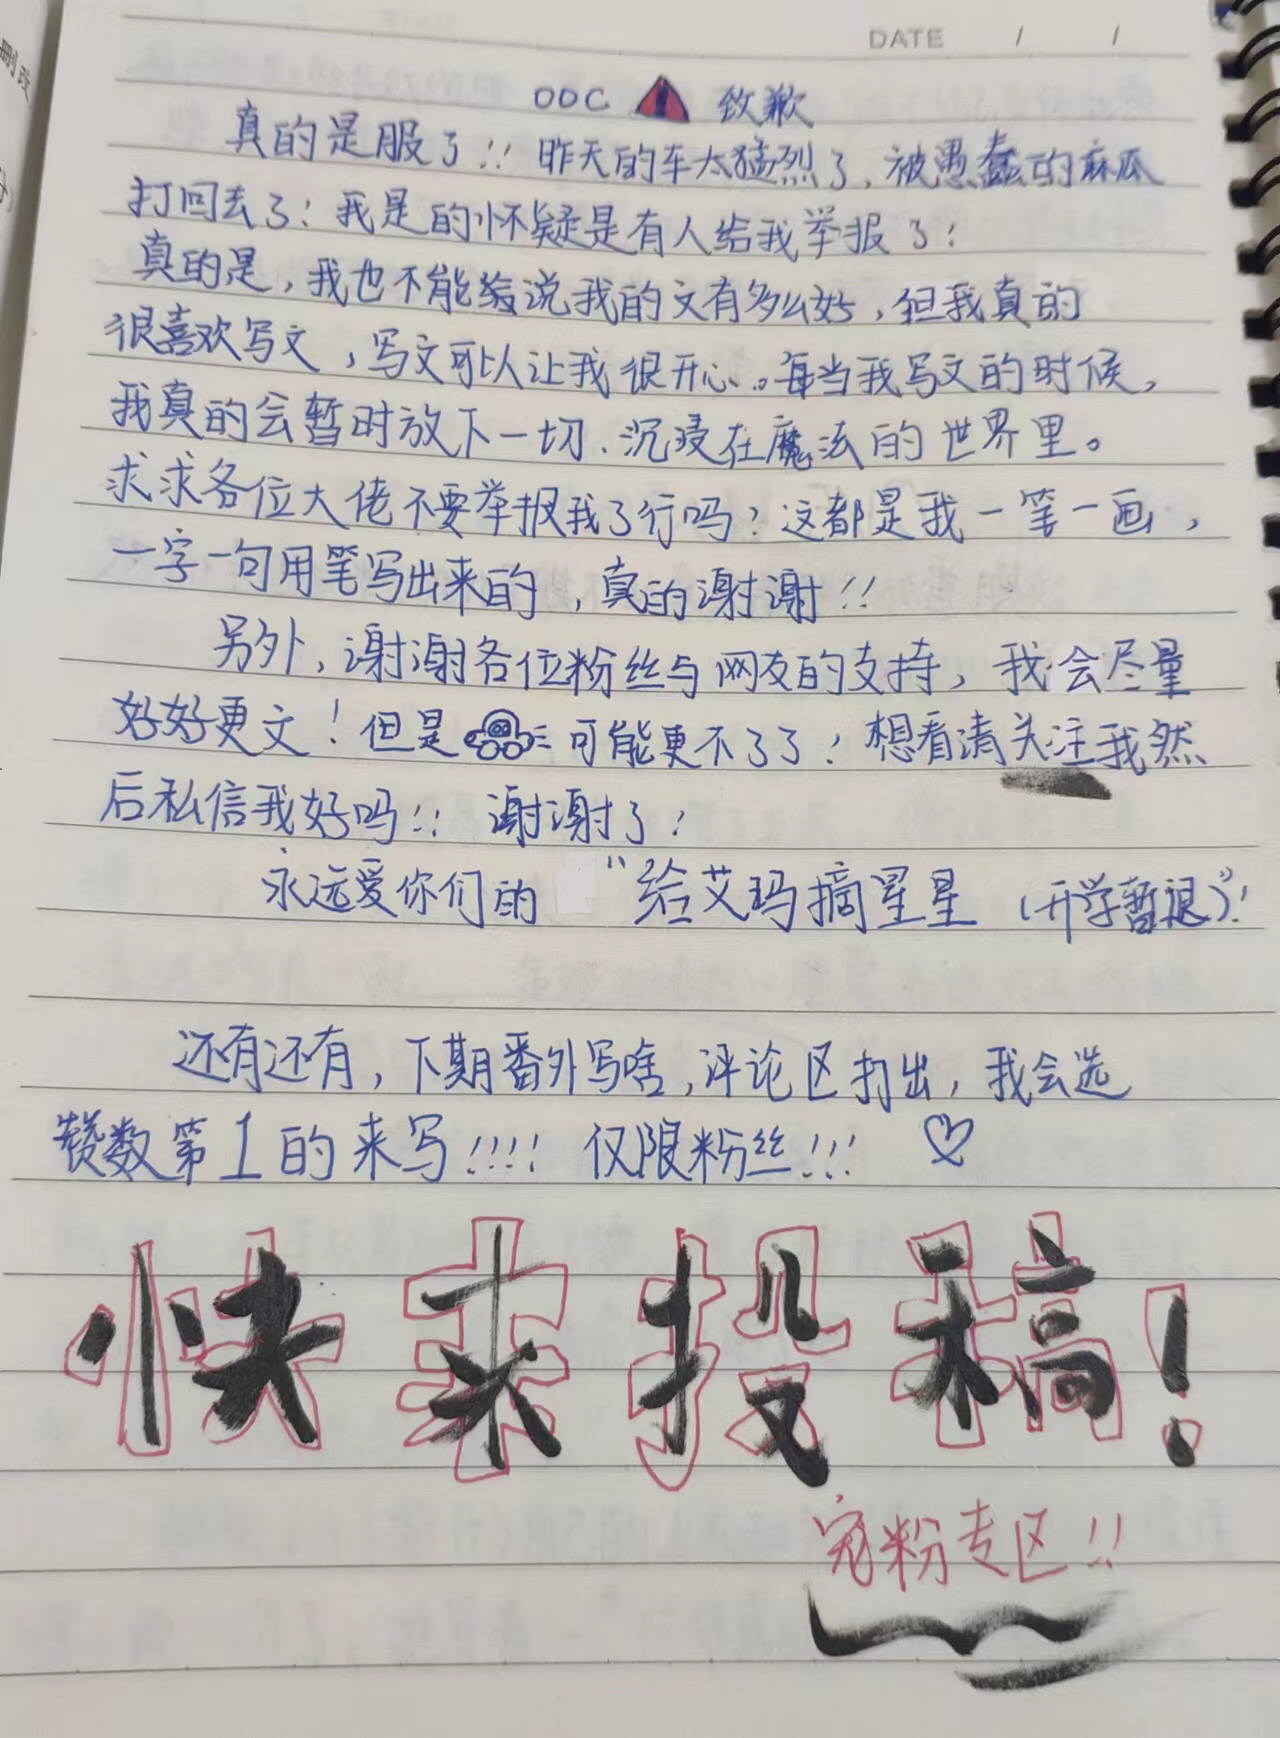 删改
DATE / /
OOC 致歉
真的是服了!! 昨天的车太猛烈了,被愚蠢的麻瓜
打回去了!我是的怀疑是有人给我举报了!
真的是,我也不能说我的文有多么好,但我真的
很喜欢写文,写文可以让我很开心。每当我写文的时候,
我真的会暂时放下一切、沉浸在魔法的世界里。
求求各位大佬不要举报我了行吗?这都是我一笔一画,
一字一句用笔写出来的,真的谢谢!!
另外,谢谢各位粉丝与网友的支持,我会尽量
好好更文!但是可能更不了了!想看请关注我然
后私信我好吗!! 谢谢了!
永远爱你们的 “给艾玛摘星星(开学暂退)”!
还有还有,下期番外写啥,评论区打出,我会选
赞数第1的来写!!!! 仅限粉丝!!!
快来投稿!
宠粉专区!!